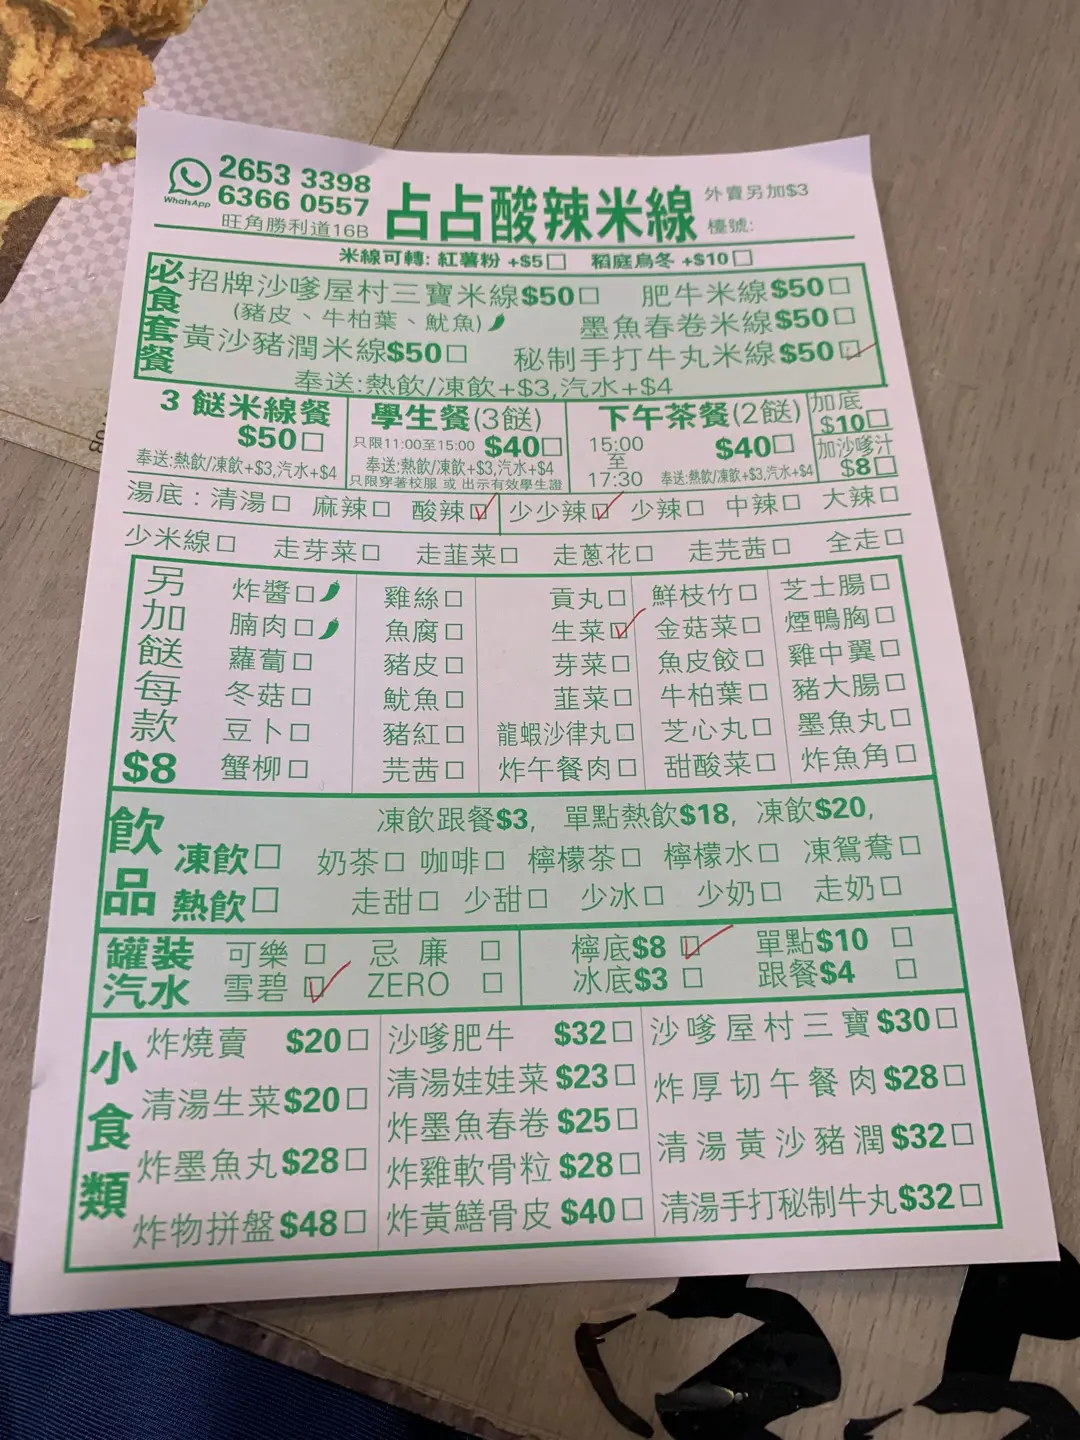 WhatsApp 2653 3398
6366 0557
旺角勝利道16B
占占酸辣米線
外賣另加$3
檯號:
米線可轉: 紅薯粉 +$5□ 稻庭烏冬 +$10□
必食套餐
招牌沙嗲屋村三寶米線$50□ 肥牛米線$50□
(豬皮、牛柏葉、魷魚) 墨魚春卷米線$50□
黃沙豬潤米線$50□ 秘制手打牛丸米線$50☑
奉送:熱飲/凍飲+$3,汽水+$4
3 餸米線餐
$50□
奉送:熱飲/凍飲+$3,汽水+$4
學生餐(3餸)
只限11:00至15:00 $40□
奉送:熱飲/凍飲+$3,汽水+$4
只限穿著校服 或 出示有效學生證
下午茶餐(2餸)
15:00至17:30 $40□
奉送:熱飲/凍飲+$3,汽水+$4
加底
$10□
加沙嗲汁
$8□
湯底：清湯□ 麻辣□ 酸辣☑ 少少辣☑ 少辣□ 中辣□ 大辣□
少米線□ 走芽菜□ 走韮菜□ 走蔥花□ 走芫茜□ 全走□
另加餸每款$8
炸醬□ 雞絲□ 貢丸□ 鮮枝竹□ 芝士腸□
腩肉□ 魚腐□ 生菜☑ 金菇菜□ 煙鴨胸□
蘿蔔□ 豬皮□ 芽菜□ 魚皮餃□ 雞中翼□
冬菇□ 魷魚□ 韮菜□ 牛柏葉□ 豬大腸□
豆卜□ 豬紅□ 龍蝦沙律丸□ 芝心丸□ 墨魚丸□
蟹柳□ 芫茜□ 炸午餐肉□ 甜酸菜□ 炸魚角□
飲品
凍飲跟餐$3, 單點熱飲$18, 凍飲$20,
凍飲□ 奶茶□ 咖啡□ 檸檬茶□ 檸檬水□ 凍鴛鴦□
熱飲□ 走甜□ 少甜□ 少冰□ 少奶□ 走奶□
罐裝汽水
可樂□ 忌廉□ 檸底$8☑ 單點$10□
雪碧☑ ZERO□ 冰底$3□ 跟餐$4□
小食類
炸燒賣 $20□
清湯生菜$20□
炸墨魚丸$28□
炸物拼盤$48□
沙嗲肥牛 $32□
清湯娃娃菜$23□
炸墨魚春卷$25□
炸雞軟骨粒$28□
炸黃鱔骨皮$40□
沙嗲屋村三寶$30□
炸厚切午餐肉$28□
清湯黃沙豬潤$32□
清湯手打秘制牛丸$32□